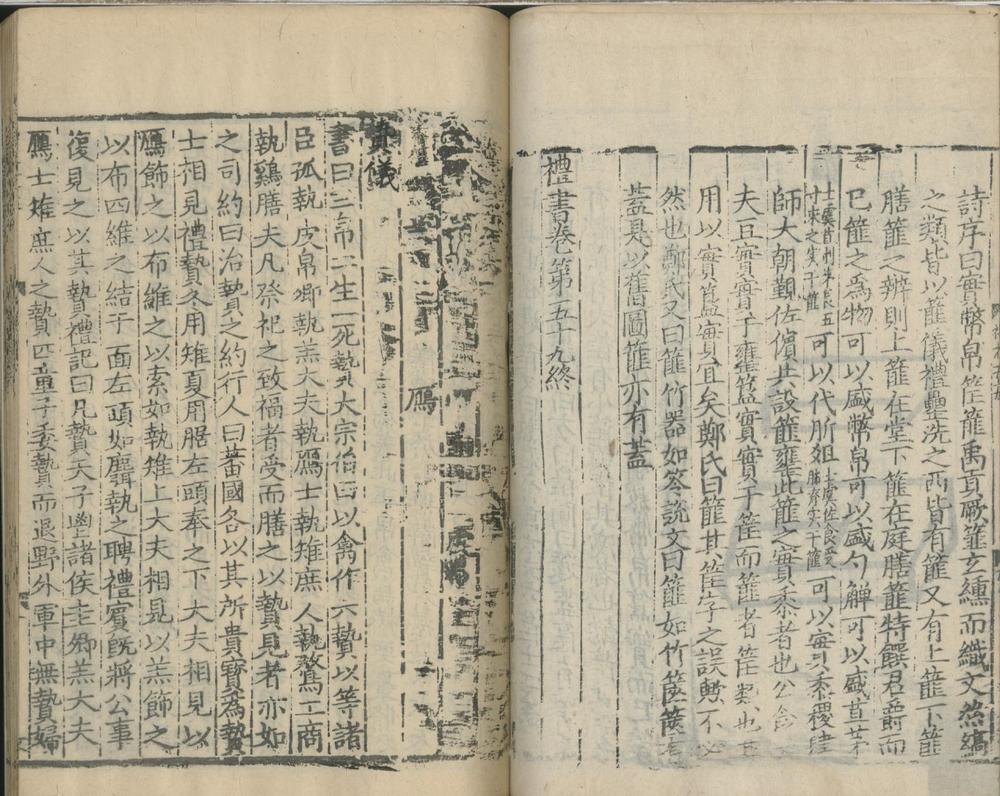 詩序曰實幣帛筐篚禹貢厥篚玄纁而織文然縞
之類皆以篚儀禮罍洗之西皆有篚又有上篚下篚
膳篚之辨則上篚在堂下篚在庭膳篚特饌君爵而
已篚之為物可以盛幣帛可以盛勺觶可以盛苴茅
士虞苴刌茅長五
寸束之實于篚
可以代肵俎
士虞佐食受
肺脊實于篚
可以實黍稷
師大朝覲佐儐共設篚甕此篚之實黍者也公食
夫豆實實于甕簋實實于筐而篚者筐類也
用以實簋實宜矣鄭氏曰篚其筐字之誤歟不
然也鄭氏又曰篚竹器如笭說文曰篚如竹篋篋
蓋是以舊圖篚亦有蓋
禮書卷第五十九終
鴈
贄儀
書曰三帛二生一死贄大宗伯曰以禽作六贄以等諸
臣孤執皮帛卿執羔大夫執鴈士執雉庶人執鶩工商
執鷄膳夫凡祭祀之致福者受而膳之以贄見者亦如
之司約曰治贄之約行人曰蕃國各以其所貴寶為贄
士相見禮贄冬用雉夏用腒左頭奉之下大夫相見以
鴈飾之以布維之以索如執雉上大夫相見以羔飾之
以布四維之結于面左頭如麛執之聘禮賓既將公事
復見之以其贄禮記曰凡贄天子鬯諸侯圭卿羔大夫
鴈士雉庶人之贄匹童子委贄而退野外軍中無贄婦